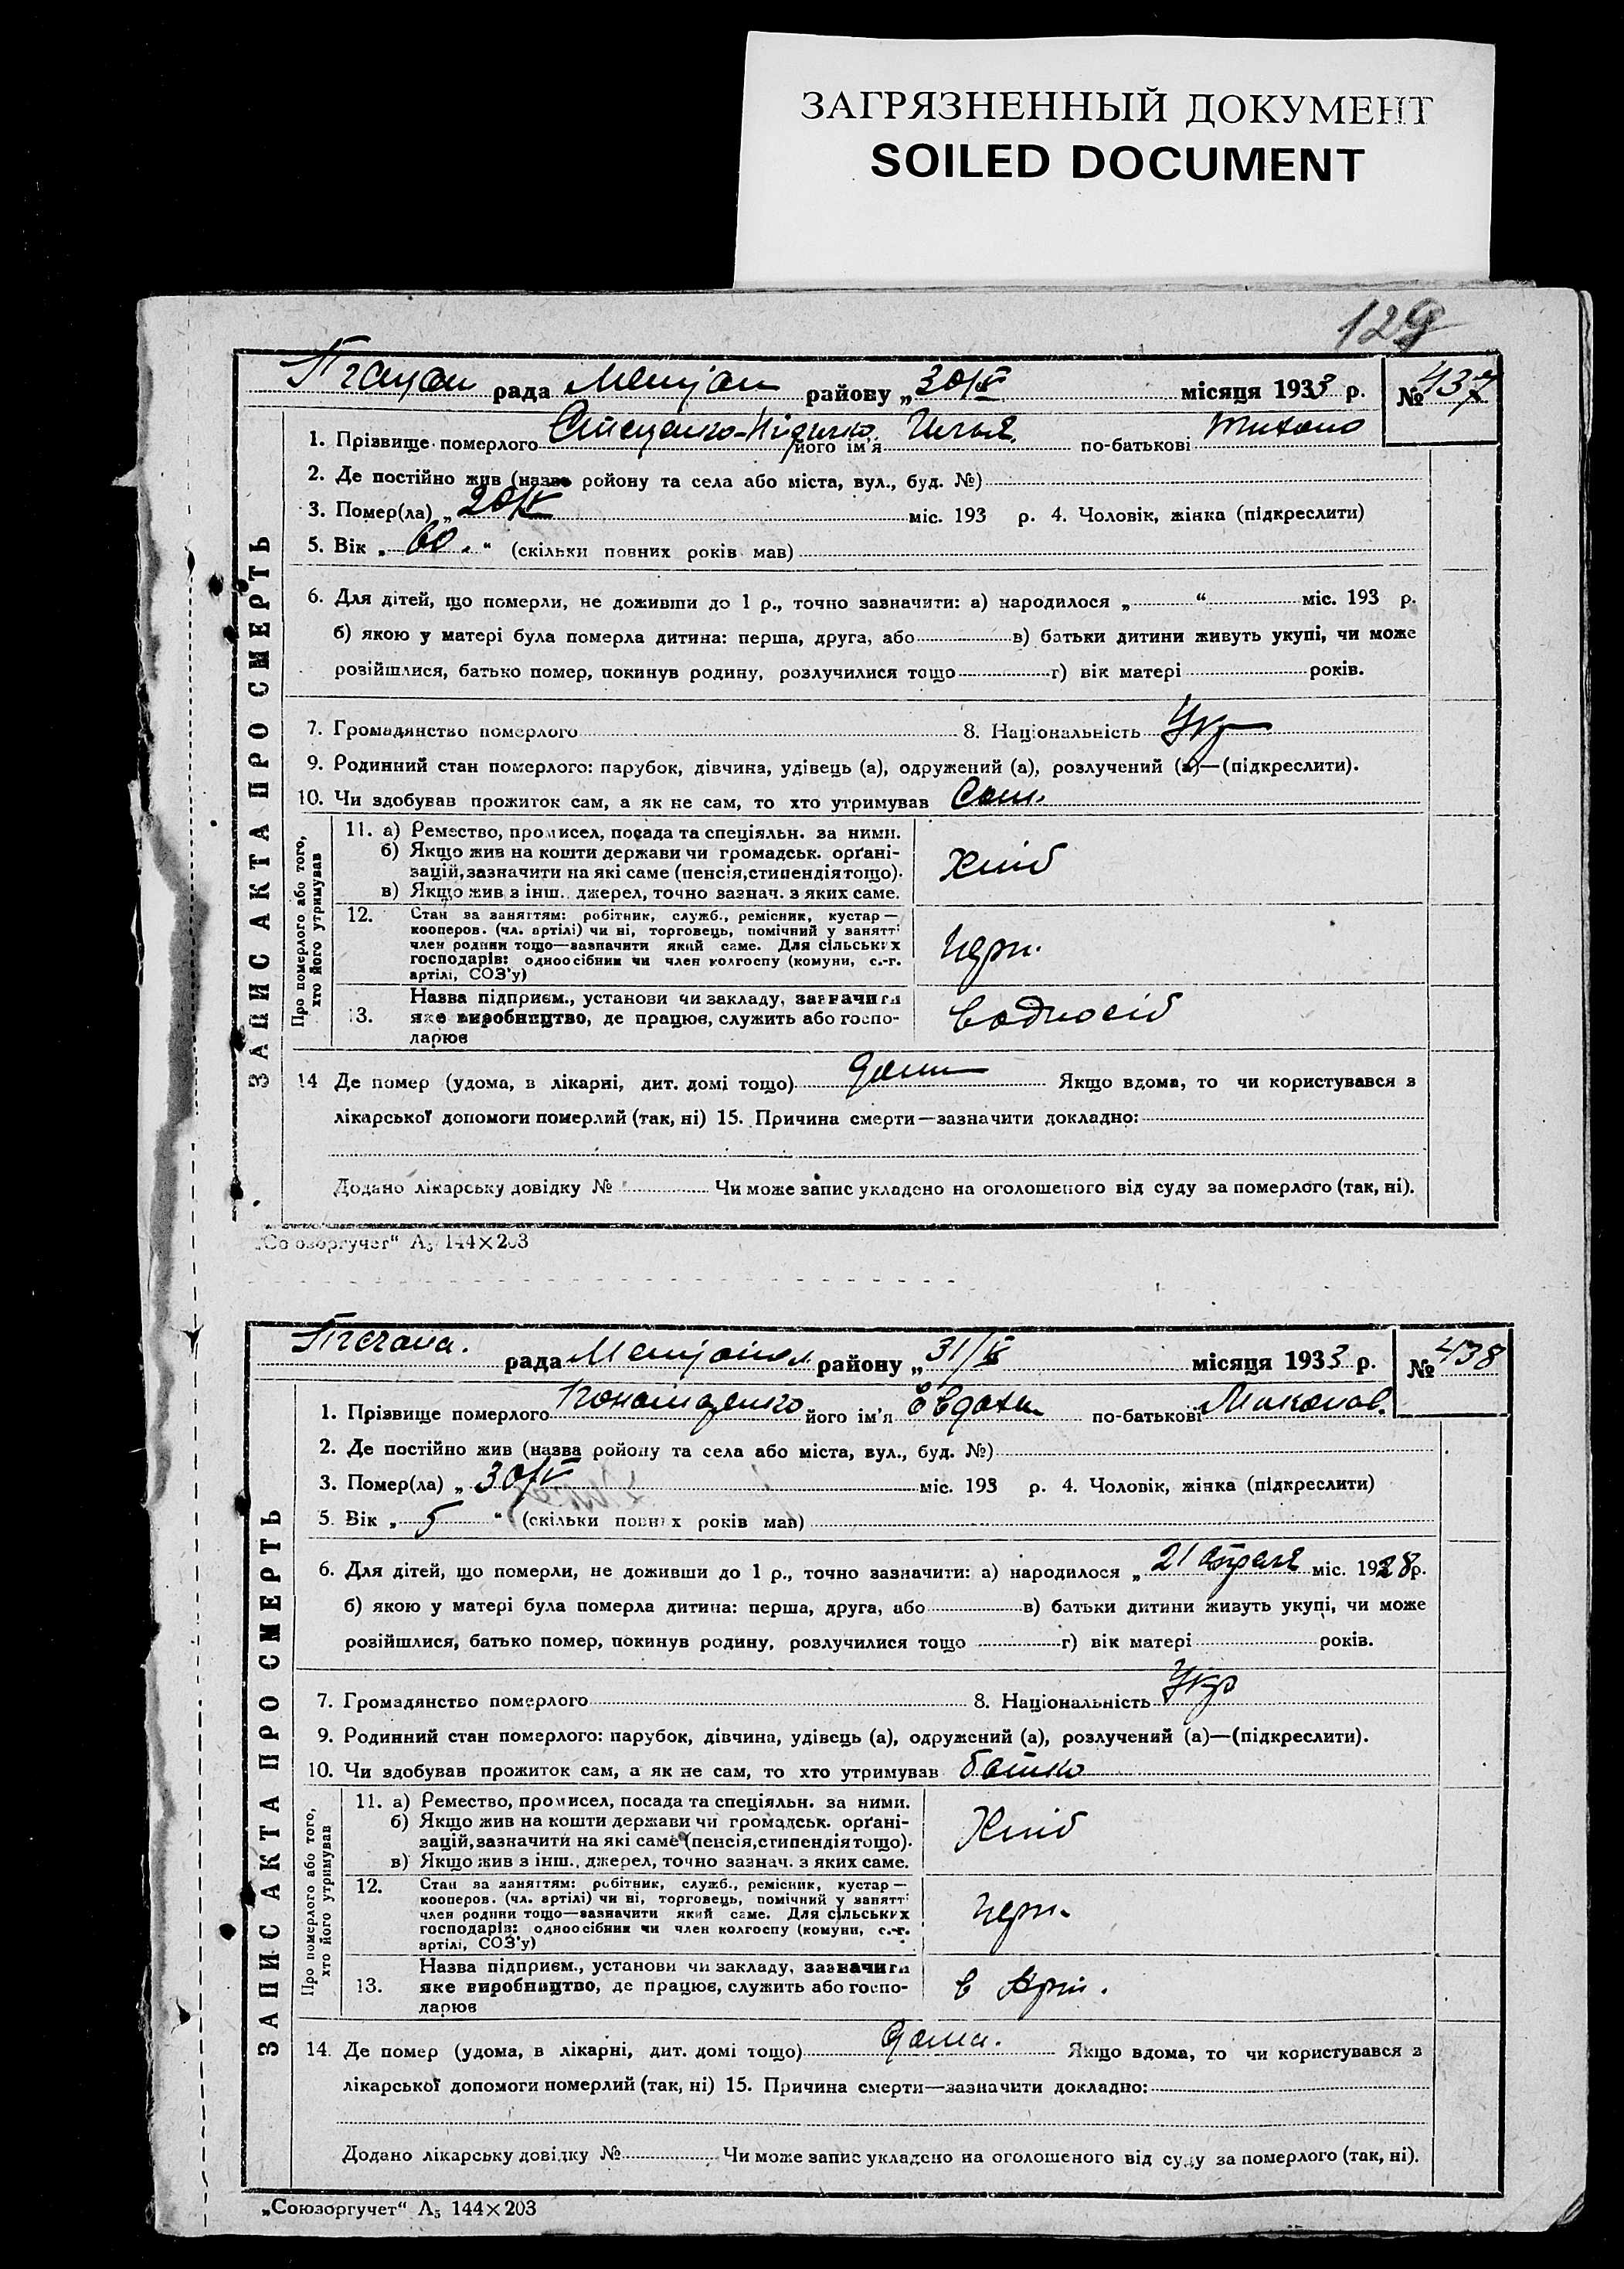 ЗАГРЯЗНЕННЫЙ ДОКУМЕНТ
SOILED DOCUMENT
129
рада района „30/V місяця 1933 р. № 437
1. Прізвище померлого його ім'я Илья по-батькові
2. Де постійно жив (назва ройону та села або міста, вул., буд. №)
3. Помер(ла) „ 20/V міс. 193 р. 4. Чоловік, жінка (підкреслити)
5. Вік „ 60. “ (скільки повних років мав)
6. Для дітей, що померли, не доживши до 1 р., точно зазначити: а) народилося „ “ міс. 193 р.
б) якою у матері була померла дитина: перша, друга, або в) батьки дитини живуть укупі, чи може
розійшлися, батько помер, покинув родину, розлучилися тощо г) вік матері років.
7. Громадянство померлого 8. Національність Укр
9. Родинний стан померлого: парубок, дівчина, удівець (а), одружений (а), розлучений (а)—(підкреслити).
10. Чи здобував прожиток сам, а як не сам, то хто утримував Сам.
ЗАПИС АКТА ПРО СМЕРТЬ
Про померлого або того,
хто його утримував
11. а) Ремество, промисел, посада та спеціяльн. за ними.
б) Якщо жив на кошти держави чи громадськ. орґані-
зацій, зазначити на які саме (пенсія, стипендія тощо).
в) Якщо жив з інш. джерел, точно зазнач. з яких саме.
Хліб
12. Стан за заняттям: робітник, служб., ремісник, кустар—
кооперов. (чл. артілі) чи ні, торговець, помічний у занятті
член родини тощо—зазначити який саме. Для сільських
господарів: одноосібник чи член колгоспу (комуни, с.-г.
артілі, СОЗ'у)
13. Назва підприєм., установи чи закладу, зазначити
яке виробництво, де працює, служить або госпо-
дарює
14 Де помер (удома, в лікарні, дит. домі тощо) Якщо вдома, то чи користувався з
лікарської допомоги померлий (так, ні) 15. Причина смерти—зазначити докладно:
Додано лікарську довідку № Чи може запис укладено на оголошеного від суду за померлого (так, ні).
„Союзоргучет“ А₅ 144×203
рада району „31/V місяця 1933 р. № 438
1. Прізвище померлого його ім'я по-батькові
2. Де постійно жив (назва ройону та села або міста, вул., буд. №)
3. Помер(ла) „ 30/V міс. 193 р. 4. Чоловік, жінка (підкреслити)
5. Вік „ 5 “ (скільки повних років мав)
6. Для дітей, що померли, не доживши до 1 р., точно зазначити: а) народилося „ 21 апреля міс. 1928 р.
б) якою у матері була померла дитина: перша, друга, або в) батьки дитини живуть укупі, чи може
розійшлися, батько помер, покинув родину, розлучилися тощо г) вік матері років.
7. Громадянство померлого 8. Національність Укр
9. Родинний стан померлого: парубок, дівчина, удівець (а), одружений (а), розлучений (а)—(підкреслити).
10. Чи здобував прожиток сам, а як не сам, то хто утримував батько
ЗАПИС АКТА ПРО СМЕРТЬ
Про померлого або того,
хто його утримував
11. а) Ремество, промисел, посада та спеціяльн. за ними.
б) Якщо жив на кошти держави чи громадськ. орґані-
зацій, зазначити на які саме (пенсія, стипендія тощо).
в) Якщо жив з інш. джерел, точно зазнач. з яких саме.
Хліб
12. Стан за заняттям: робітник, служб., ремісник, кустар—
кооперов. (чл. артілі) чи ні, торговець, помічний у занятті
член родини тощо—зазначити який саме. Для сільських
господарів: одноосібник чи член колгоспу (комуни, с.-г.
артілі, СОЗ'у)
13. Назва підприєм., установи чи закладу, зазначити
яке виробництво, де працює, служить або госпо-
дарює
14. Де помер (удома, в лікарні, дит. домі тощо) дома. Якщо вдома, то чи користувався з
лікарської допомоги померлий (так, ні) 15. Причина смерти—зазначити докладно:
Додано лікарську довідку № Чи може запис укладено на оголошеного від суду за померлого (так, ні).
„Союзоргучет“ А₅ 144×203